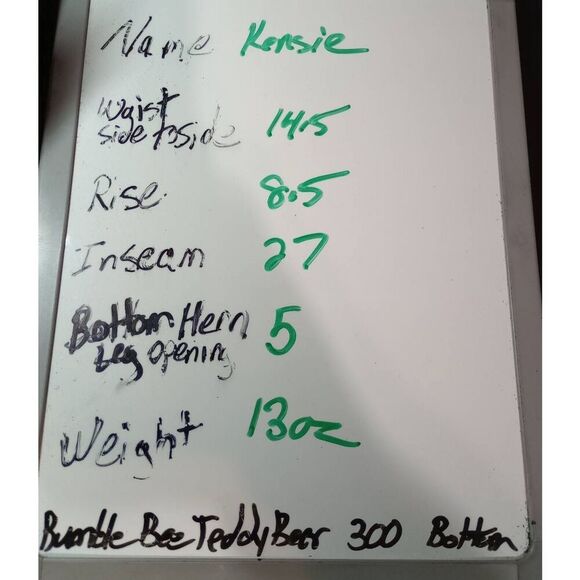 Name Kensie
Waist
side to side 14.5
Rise 8.5
Inseam 27
Bottom Hem 5
Leg opening
Weight 13oz
Bumble Bee Teddy Bear 300 Bottom